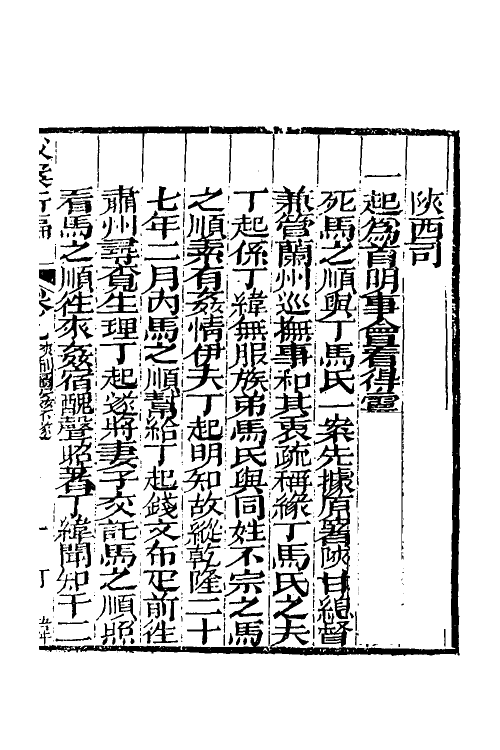 陝西司
一起爲首明事會看得霊
死馬之順與丁馬氏一案先據原署陝甘總督
兼管蘭州巡撫事和其衷疏稱緣丁馬氏之夫
丁起係丁緯無服族弟馬氏與同姓不宗之馬
之順素有姦情伊夫丁起明知故縱乾隆二十
七年二月內馬之順幫給丁起錢文布疋前徃
肅州尋覔生理丁起遂將妻子交託馬之順照
看馬之順徃來姦宿醜聲昭著丁緯聞知十二
新編